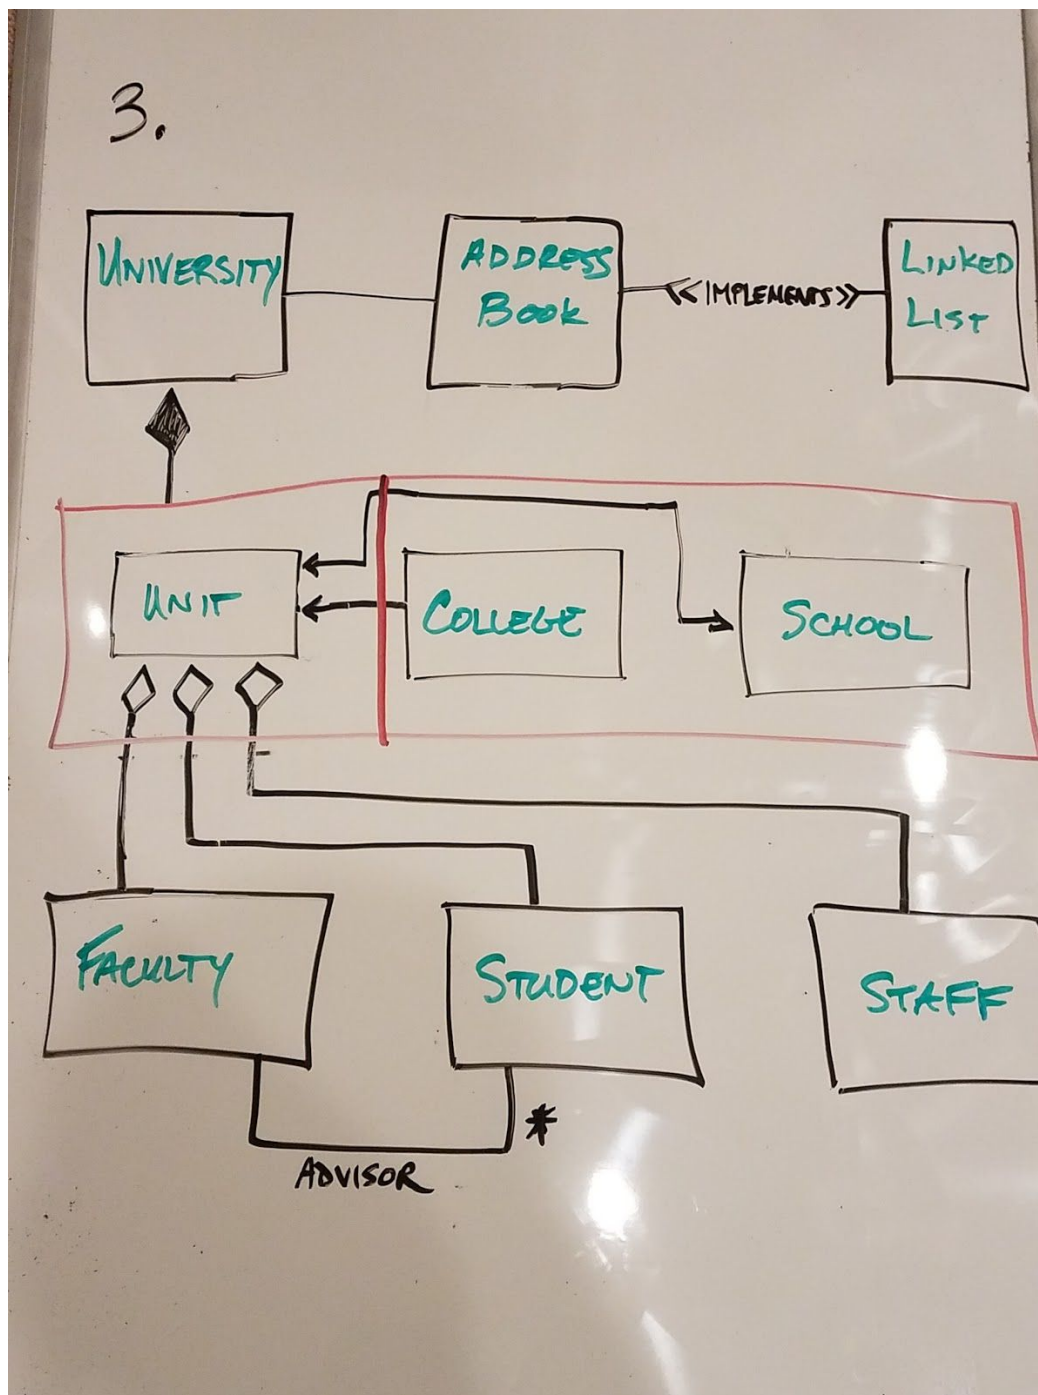 3.
UNIVERSITY
ADDRESS
BOOK
<<IMPLEMENTS>>
LINKED
LIST
UNIT
COLLEGE
SCHOOL
FACULTY
STUDENT
STAFF
*
ADVISOR